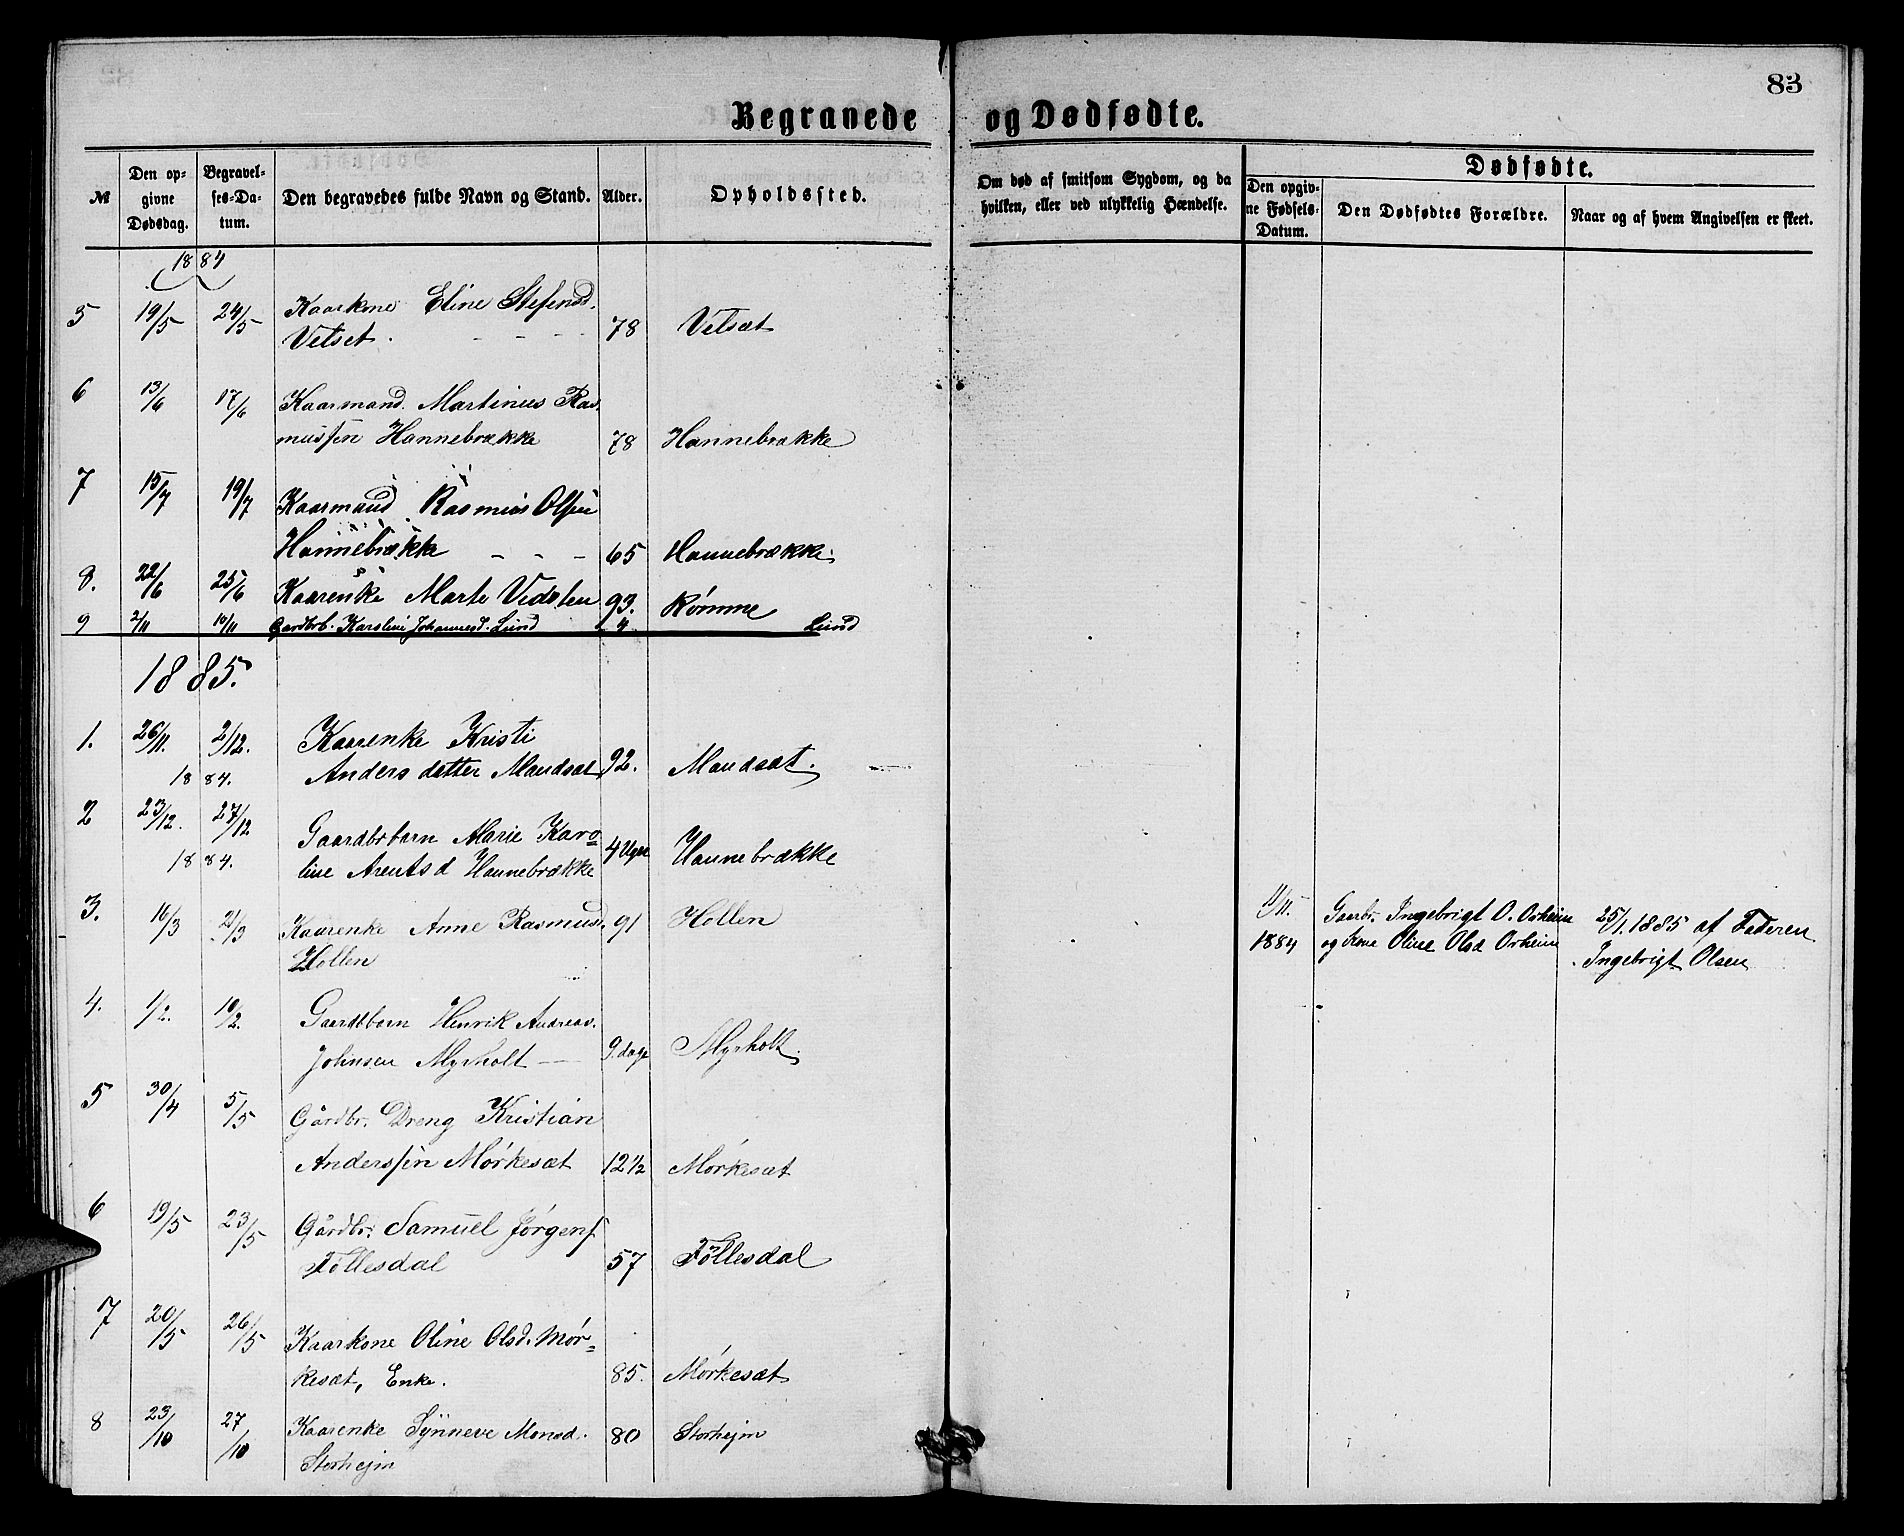 83
Begravede og Dødfødte.
№ Den opgivne Dødsdag. Begravelses-Datum. Den begravedes fulde Navn og Stand. Alder. Opholdssted. Om død af smitsom Sygdom, og da hvilken, eller ved ulykkelig Hændelse. Dødfødte. Den opgivne Fødsels-Datum. Den Dødfødtes Forældre. Naar og af hvem Angivelsen er skeet.
1884
5 19/5 24/5 Kaarkone Eline Stefensd.
Vetset. - - - 78 Vetsæt
6 13/6 17/6 Kaarmand. Martinus Ras-
mussen Hannebrække 78 Hannebrække
7 15/7 19/7 Kaarmand Rasmus Olsen
Hannebrække - - - 65 Hannebrække
8. 22/6 25/6 Kaarenke Marte Vidsten 93. Rømme
9 2/11 10/11 Gardbrb. Karoline Johannesd. Lund 4 Lund
1885.
1. 26/11. 2/12. Kaarenke Kristi
1884. Anders datter Maudsæt 92. Maudsæt.
2 23/12. 27/12 Gaardbrbarn Marie Karo=
1884. line Arentsd Hannebrække 4 Uger Hannebrække
3. 16/3 21/3 Kaarenke Anne Rasmusd. 91 Hollen
Hollen
11/11. 1884 Gaarbr. Ingebrigt O. Orheim
og Kone Oline Olsd Orheim
25/1. 1885 af Faderen
Ingebrigt Olsen
4. 1/2. 10/2. Gaardbbarn Henrik Andreas.
Johnsen Myrholt — 9. dage Myrholt.
5 30/4 5/5 Gårdbr. Dreng Kristian
Anderssen Mørkesæt 12 1/2 Mørkesæt
6 19/5 23/5 Gårdbr. Samuel Jørgens.
Føllesdal 57 Føllesdal
7 20/5 26/5 Kaarkone Oline Olsd. Mør=
kesæt, Enke. 85. Mørkesæt
8 23/10 27/10 Kaarenke Synneve Monsd. 80 Storhejm
Storhejm